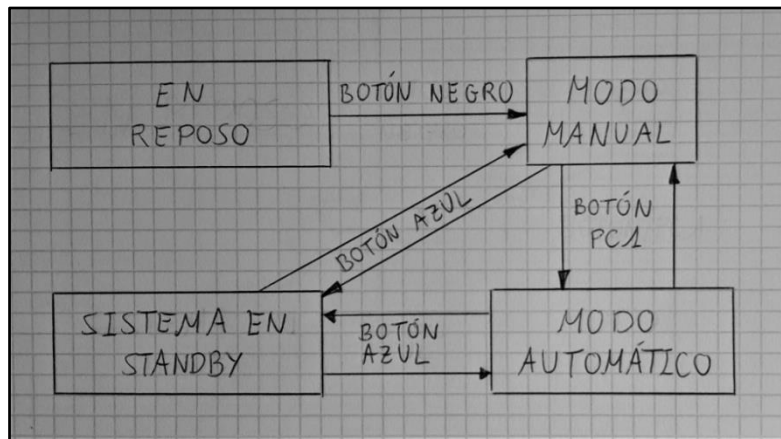 EN
REPOSO
BOTÓN NEGRO
MODO
MANUAL
BOTÓN AZUL
BOTÓN
PC1
SISTEMA EN
STANDBY
BOTÓN
AZUL
MODO
AUTOMÁTICO